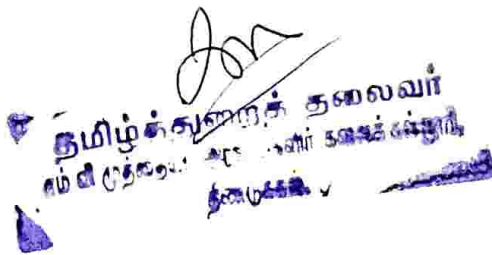 தமிழ்த்துறைத் தலைவர்
எம் வி முத்தையா அரசு மகளிர் கலைக் கல்லூரி,